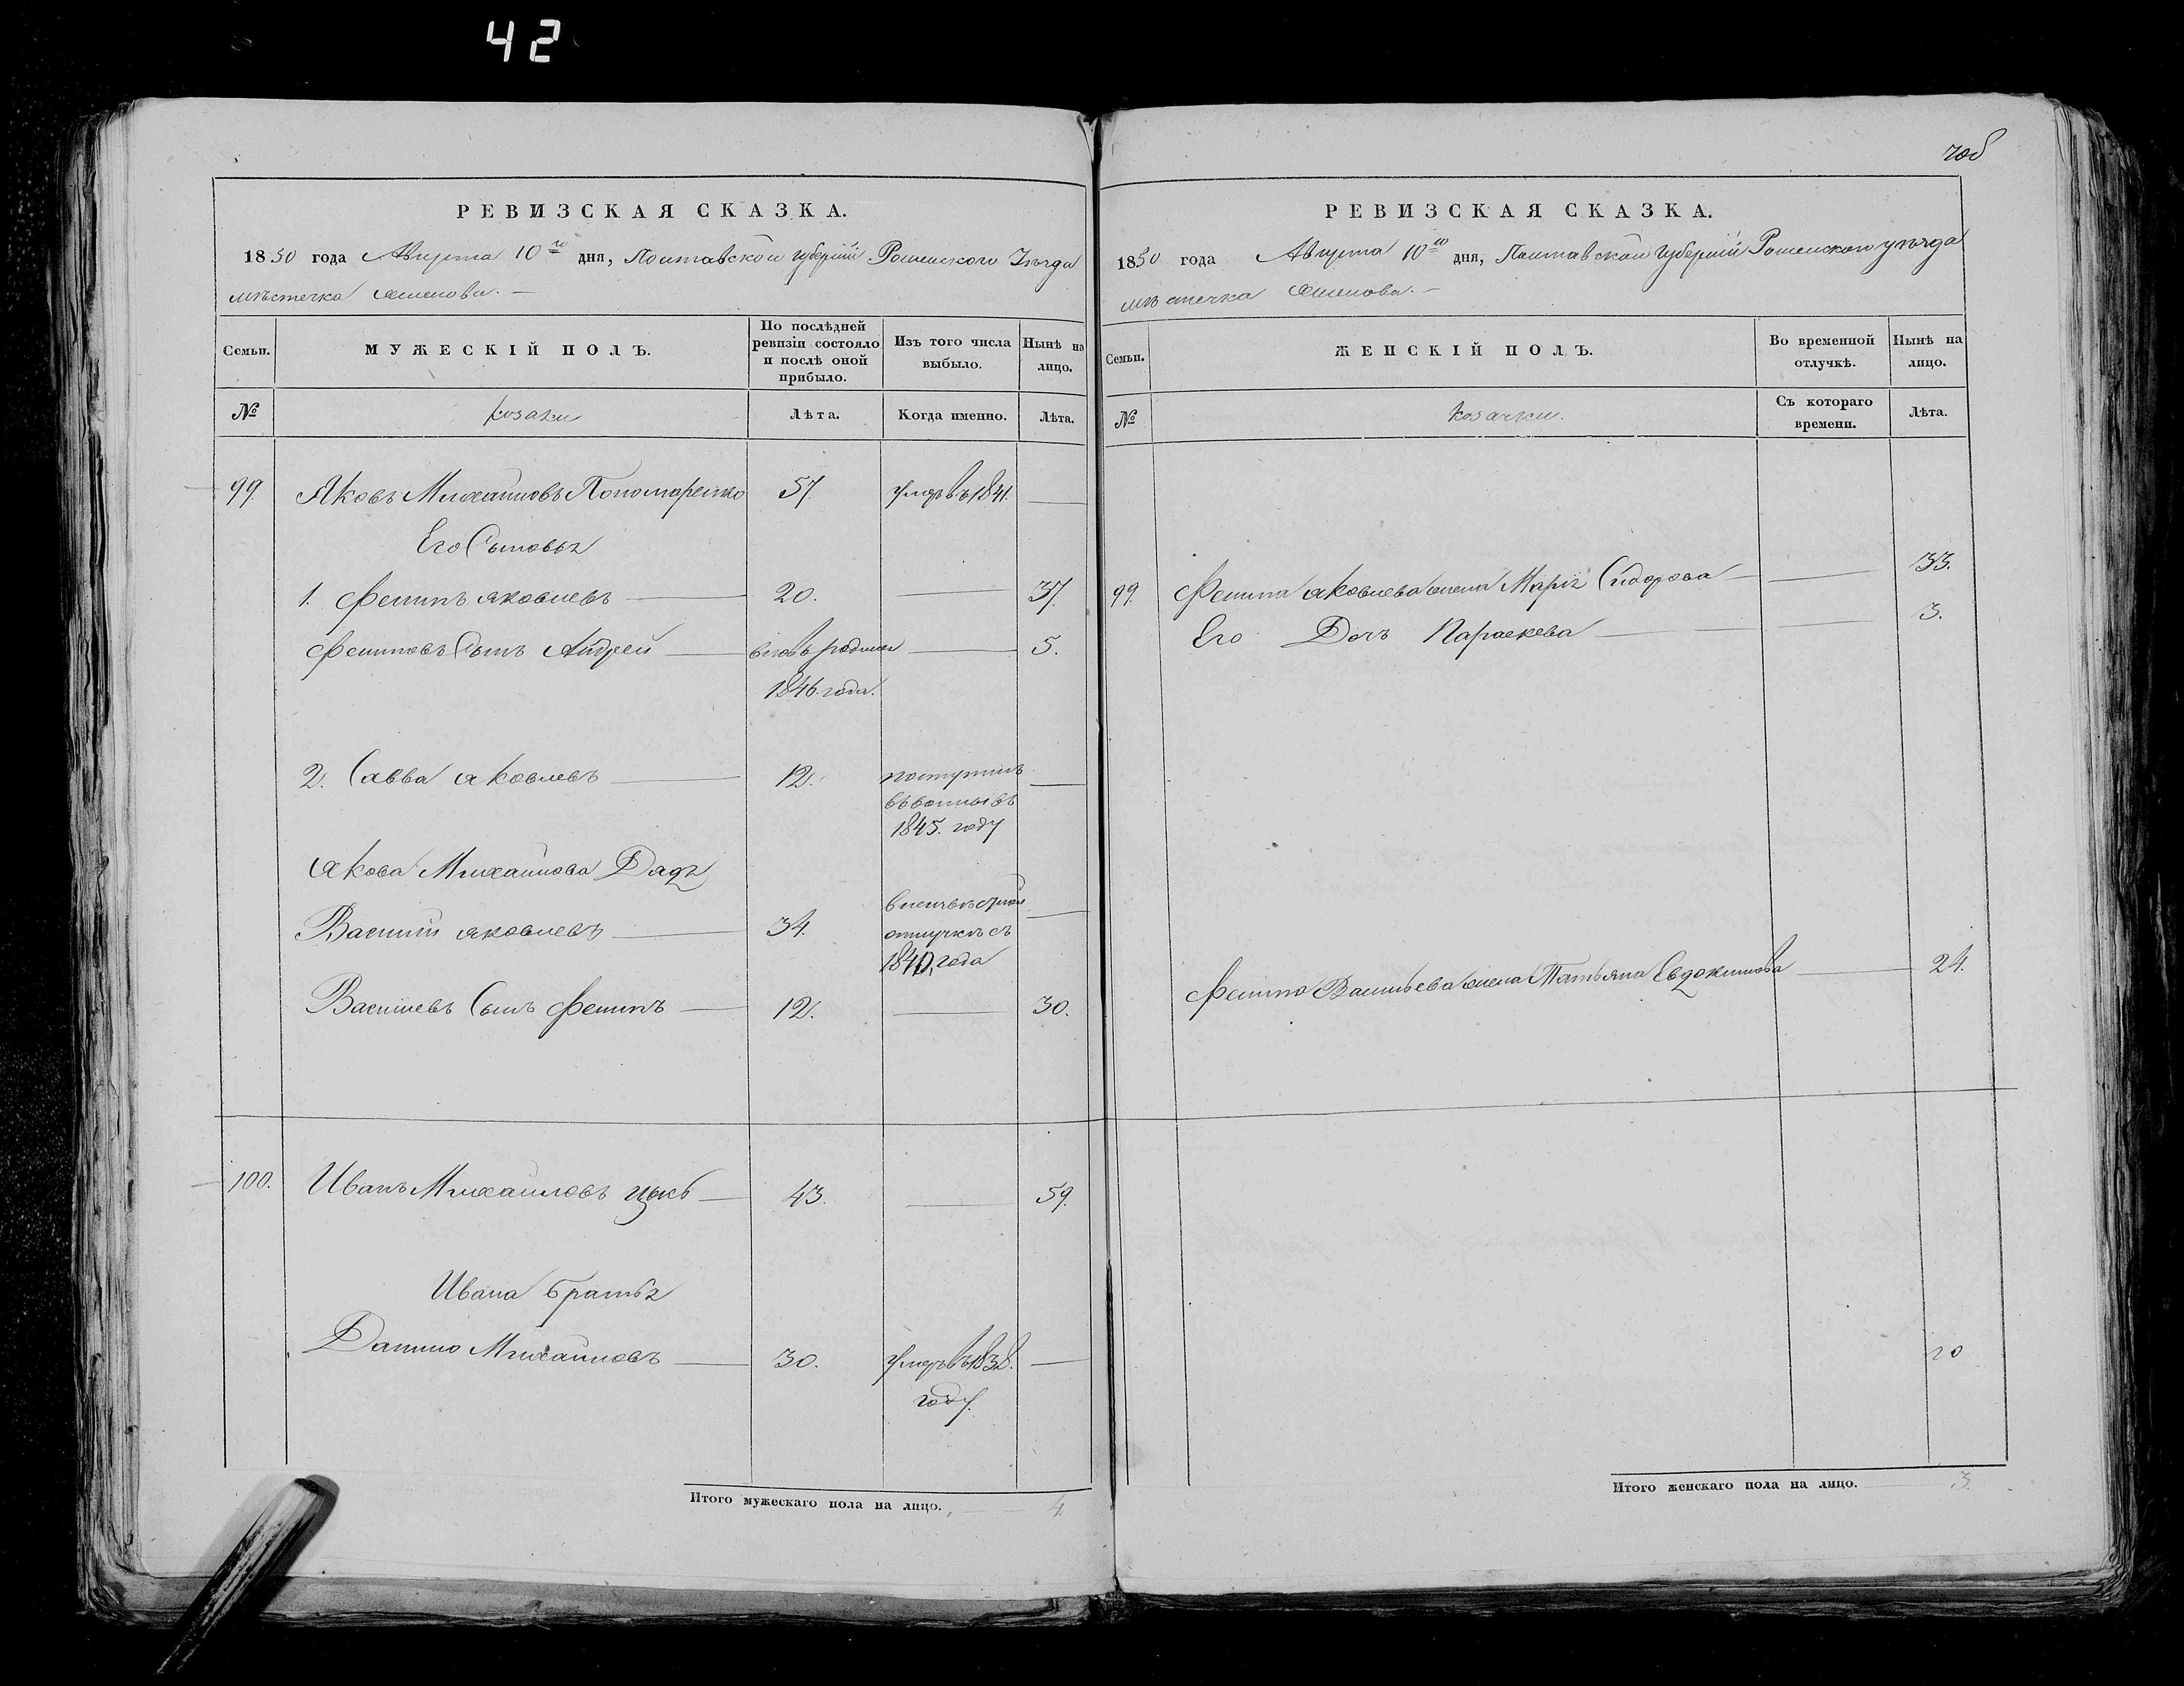 42
РЕВИЗСКАЯ СКАЗКА.
1850 года Августа 10го дня, Полтавской губернии Роменского Уезда
мѣстечка
Семьи.
МУЖЕСКІЙ ПОЛЪ.
По послѣдней ревизіи состояло и послѣ оной прибыло.
Изъ того числа выбыло.
Нынѣ на лицо.
№
козаки
Лѣта.
Когда именно.
Лѣта.
99. Яковъ Михайловъ Пономаренко 57. умеръ въ 1841.
Его Сыновья
1. Филипъ Яковлевъ 20. 37.
Филиповъ Сынъ Андрей вновь родился 5.
1846. года.
2. Савва Яковлевъ 12. поступилъ
1845. году
Якова Михайлова Дядя
Василий Яковлевъ 34.
отлучкѣ съ
1840, года
Васильевъ Сынъ Филипъ 12. 30.
100. Иванъ Михайловъ 43. 59.
Ивана братья
Данило Михайловъ 30. умеръ въ 1838.
году.
Итого мужескаго пола на лицо. 4.
РЕВИЗСКАЯ СКАЗКА.
1850 года Августа 10го дня, Полтавской губернии Роменского уезда
мѣстечка
Семьи.
ЖЕНСКІЙ ПОЛЪ.
Во временной отлучкѣ.
Нынѣ на лицо.
№
козачки.
Съ котораго времени.
Лѣта.
99. Филипа Яковлева жена Марія Сидорова 33.
Его Дочь Параскева 3.
Филипа Васильева жена Татьяна Евдокимова 24.
Итого женскаго пола на лицо. 3.